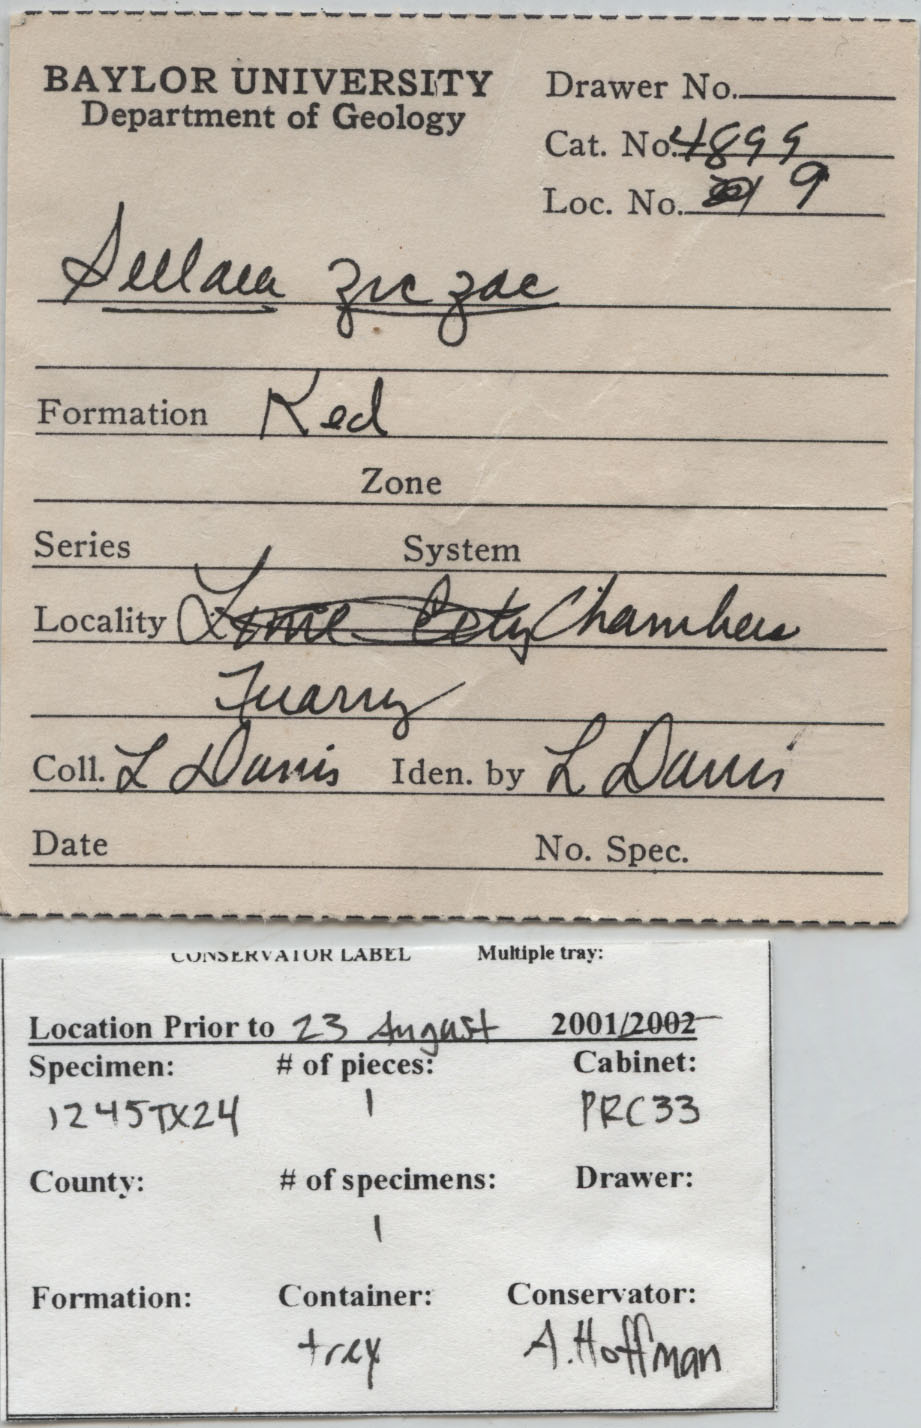 BAYLOR UNIVERSITY
Department of Geology
Drawer No.
Cat. No. 4899
Loc. No. 9
zic zac
Formation Ked
Zone
Series System
Locality Lime City Chambers
Quarry
Coll. L Davis Iden. by L Davis
Date No. Spec.
CONSERVATOR LABEL Multiple tray:
Location Prior to 23 August 2001/2002
Specimen: # of pieces: Cabinet:
1245TX24 1 PRC33
County: # of specimens: Drawer:
1
Formation: Container: Conservator:
tray A. Hoffman